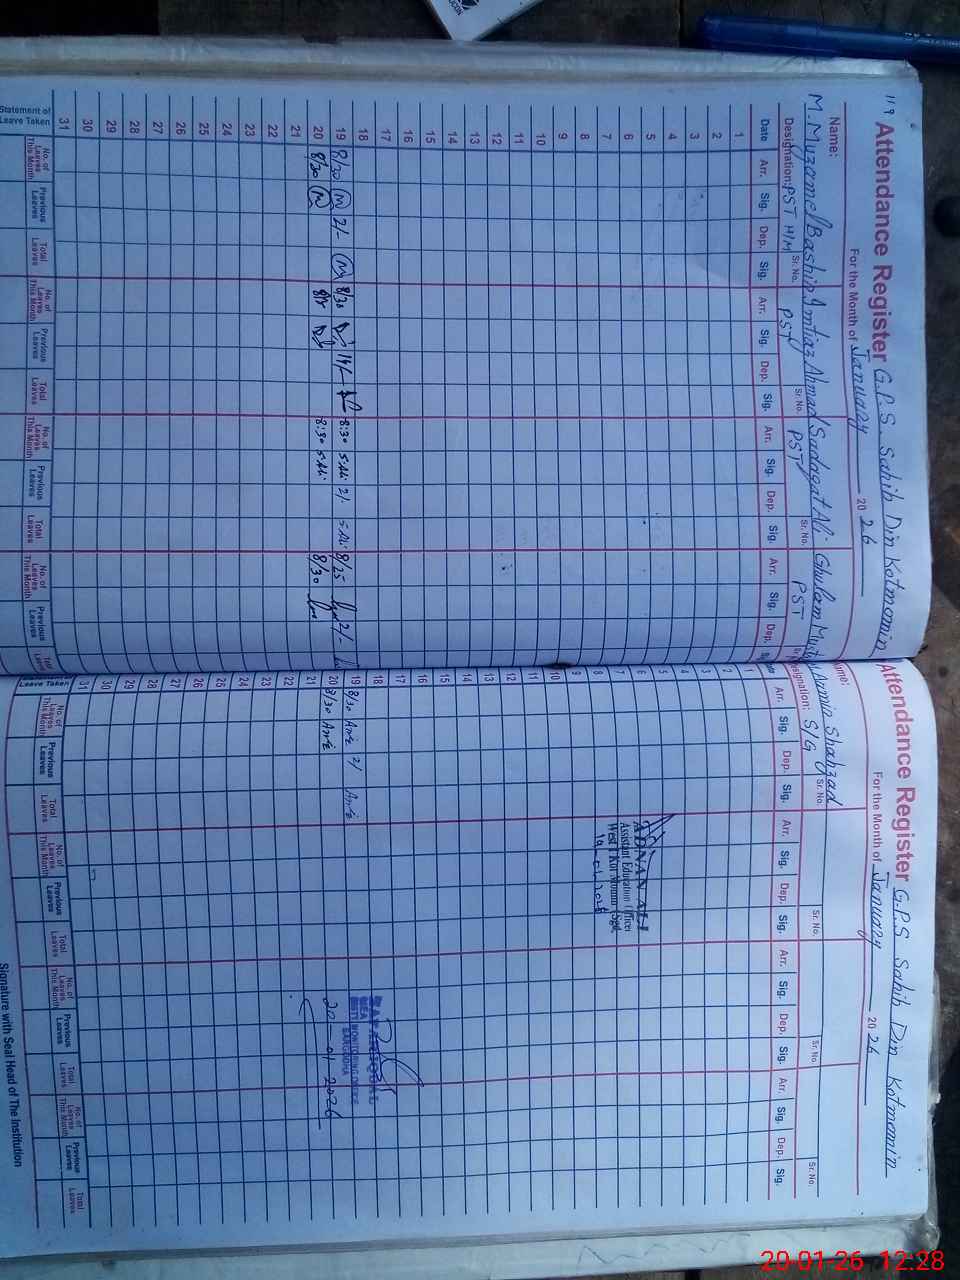 119 Attendance Register G.P.S. Sahib Din Kotmomin
For the Month of January 2026
Name:
M. Muzamel Bashir Imtiaz Ahmad Sadaqat Ali Ghulam
Designation: PST H/M Sr. No. PST Sr. No. PST Sr. No. PST
Date Arr. Sig. Dep. Sig. Arr. Sig. Dep. Sig. Arr. Sig. Dep. Sig. Arr. Sig. Dep.
1
2
3
4
5
6
7
8
9
10
11
12
13
14
15
16
17
18
19 8/30 M 2/- M 8/30 14/- 8:30 S.Ali 2/- S.Ali 8/25 2/-
20 8/30 M 8:30 S.Ali 8/30
21
22
23
24
25
26
27
28
29
30
31
Statement of Leave Taken No. of Leaves This Month Previous Leaves Total Leaves No. of Leaves This Month Previous Leaves Total Leaves No. of Leaves This Month Previous Leaves Total Leaves No. of Leaves This Month Previous Leaves
Attendance Register G.P.S Sahib Din Kotmomin
For the Month of January 2026
Shahzad
Designation: S/G Sr. No. Sr. No. Sr. No. Sr. No.
Arr. Sig. Dep. Sig. Arr. Sig. Dep. Sig. Arr. Sig. Dep. Sig. Arr. Sig. Dep. Sig.
1
2
3
4
5
6
7
8
9
10
11
12
13
14
15
16
17
18
19 8/30 2/
20 8/30
21
22
23
24
25
26
27
28
29
30
31
ADNAN ALI
Assistant Education Officer
West Kot Momin
19-01-2026
MONITORING OFFICER
SARGODHA
20-01-2026
Leave Taken No. of Leaves This Month Previous Leaves Total Leaves No. of Leaves This Month Previous Leaves Total Leaves No. of Leaves This Month Previous Leaves Total Leaves No. of Leaves This Month Previous Leaves Total Leaves
Signature with Seal Head of The Institution
20-01-26 12:28